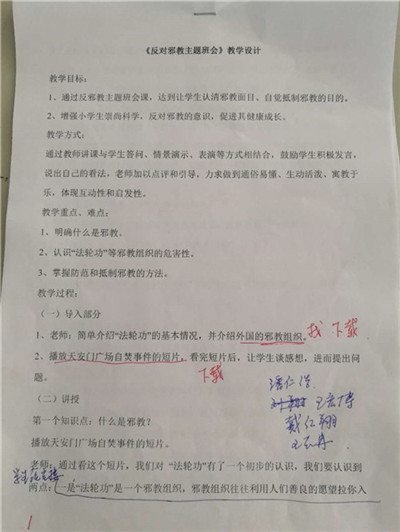 《反对邪教主题班会》教学设计
教学目标：
1、通过反邪教主题班会课，达到让学生认清邪教面目、自觉抵制邪教的目的。
2、增强小学生崇尚科学，反对邪教的意识，促进其健康成长。
教学方式：
通过教师讲课与学生答问、情景演示、表演等方式相结合，鼓励学生积极发言，
说出自己的看法，老师加以点评和引导，力求做到通俗易懂、生动活泼、寓教于
乐，体现互动性和启发性。
教学重点、难点：
1、明确什么是邪教。
2、认识“法轮功”等邪教组织的危害性。
3、掌握防范和抵制邪教的方法。
教学过程：
（一）导入部分
1、老师：简单介绍“法轮功”的基本情况，并介绍外国的邪教组织。找 下载
2、播放天安门广场自焚事件的短片，看完短片后，让学生谈感想，进而提出问
题。
下载
（二）讲授
第一个知识点：什么是邪教？
戴仁翔
播放天安门广场自焚事件的短片。
老师：通过看这个短片，我们对 “法轮功”有了一个初步的认识，我们要认识到
两点：一是“法轮功”是一个邪教组织，邪教组织往往利用人们善良的愿望拉你入